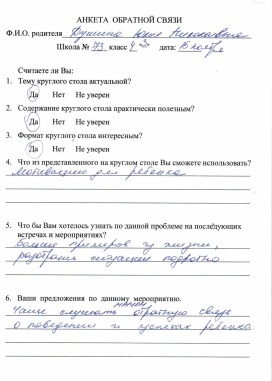 АНКЕТА ОБРАТНОЙ СВЯЗИ
Ф.И.О. родителя Душкина Юлия Николаевна
Школа № 73 класс 4 З дата: 15 ноября
Считаете ли Вы:
1. Тему круглого стола актуальной?
Да Нет Не уверен
2. Содержание круглого стола практически полезным?
Да Нет Не уверен
3. Формат круглого стола интересным?
Да Нет Не уверен
4. Что из представленного на круглом столе Вы сможете использовать?
Мотивацию для ребенка
5. Что бы Вам хотелось узнать по данной проблеме на последующих
встречах и мероприятиях?
Больше примеров из жизни,
разобрали ситуацию подробно
6. Ваши предложения по данному мероприятию.
Чаще слушать обратную связь
о поведении и успехах ребенка.